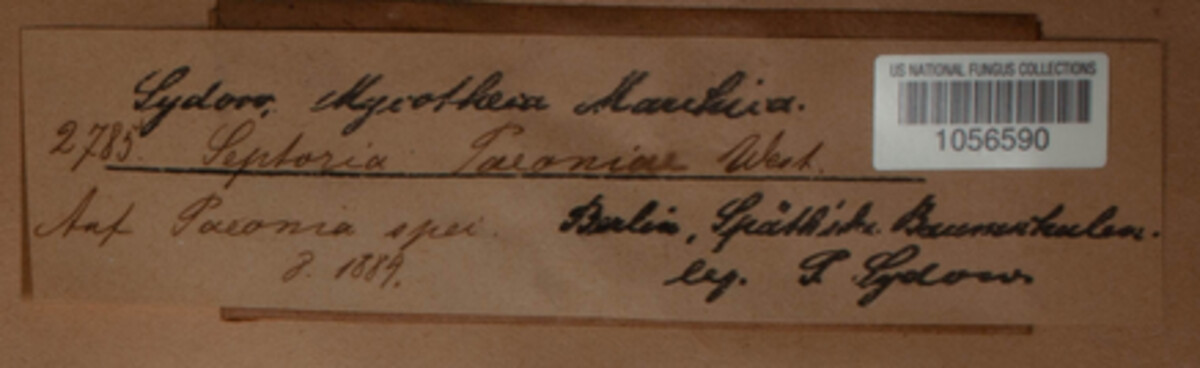 Sydow, Mycotheca Marchica.
US NATIONAL FUNGUS COLLECTIONS
1056590
2785. Septoria Paeoniae West.
Auf Paeonia spec. Berlin, Späth'sche Baumschulen.
8. 1889. leg. P. Sydow.